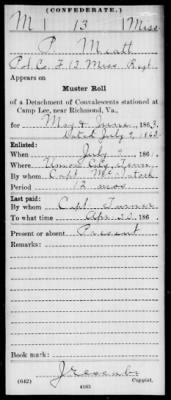 (CONFEDERATE.)
M 13 Miss
P.
Pvt. Co. F 13 Miss Regt.
Appears on
Muster Roll
of a Detachment of Convalescents stationed at
Camp Lee, near Richmond, Va.,
for May & June, 1863.
Dated July 2, 1863
Enlisted:
When July, 186
Where Union City Tenn
By whom Capt.
Period 12 mos
Last paid:
By whom Capt
To what time Apr 186
Present or absent. Present
Remarks:
Book mark:
(642) Copyist.